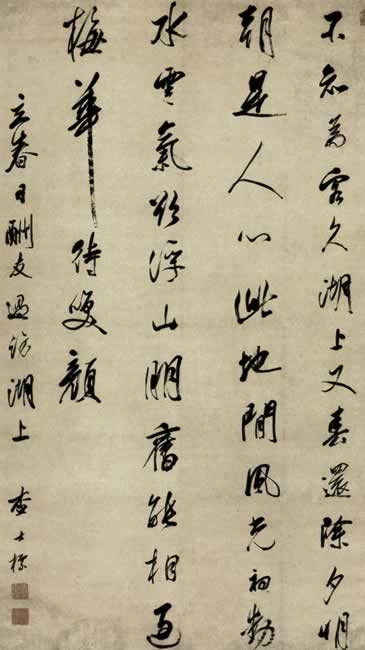 不知為客久湖上又春還除夕明
朝是人心此地閒風光初動
水雲氣欲浮山朋舊能相過
梅華待咲顏
立春日酬友過訪湖上 查士標